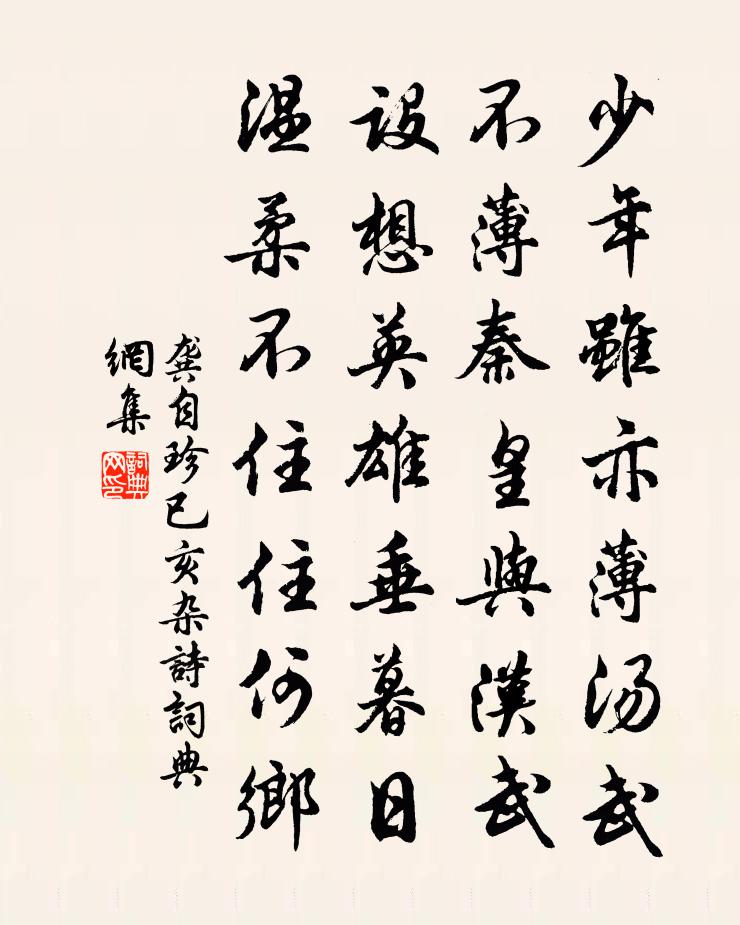 少年雖亦薄湯武
不薄秦皇與漢武
設想英雄垂暮日
温柔不住住何鄉
龔自珍己亥杂詩詞典
網集
詞典
网印